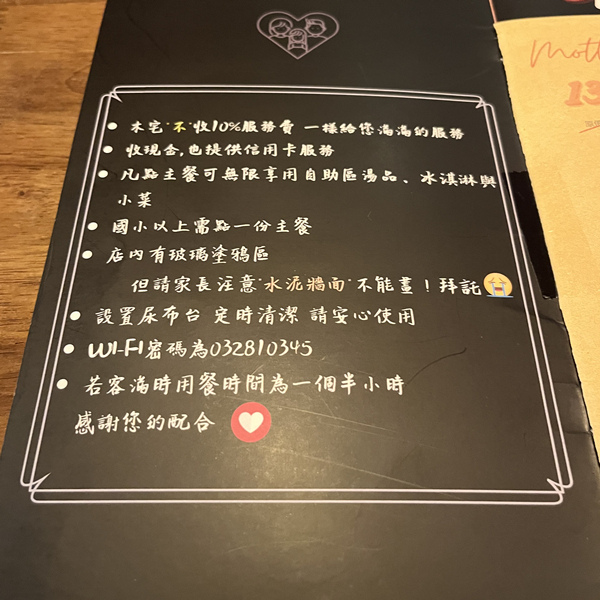 木宅"不"收10%服務費 一樣給您滿滿的服務
收現金,也提供信用卡服務
凡點主餐可無限享用自助區湯品、冰淇淋與
小菜
國小以上需點一份主餐
店內有玻璃塗鴉區
但請家長注意"水泥牆面"不能畫！拜託
設置尿布台 定時清潔 請安心使用
WI-FI密碼為032810345
若客滿時用餐時間為一個半小時
感謝您的配合
13